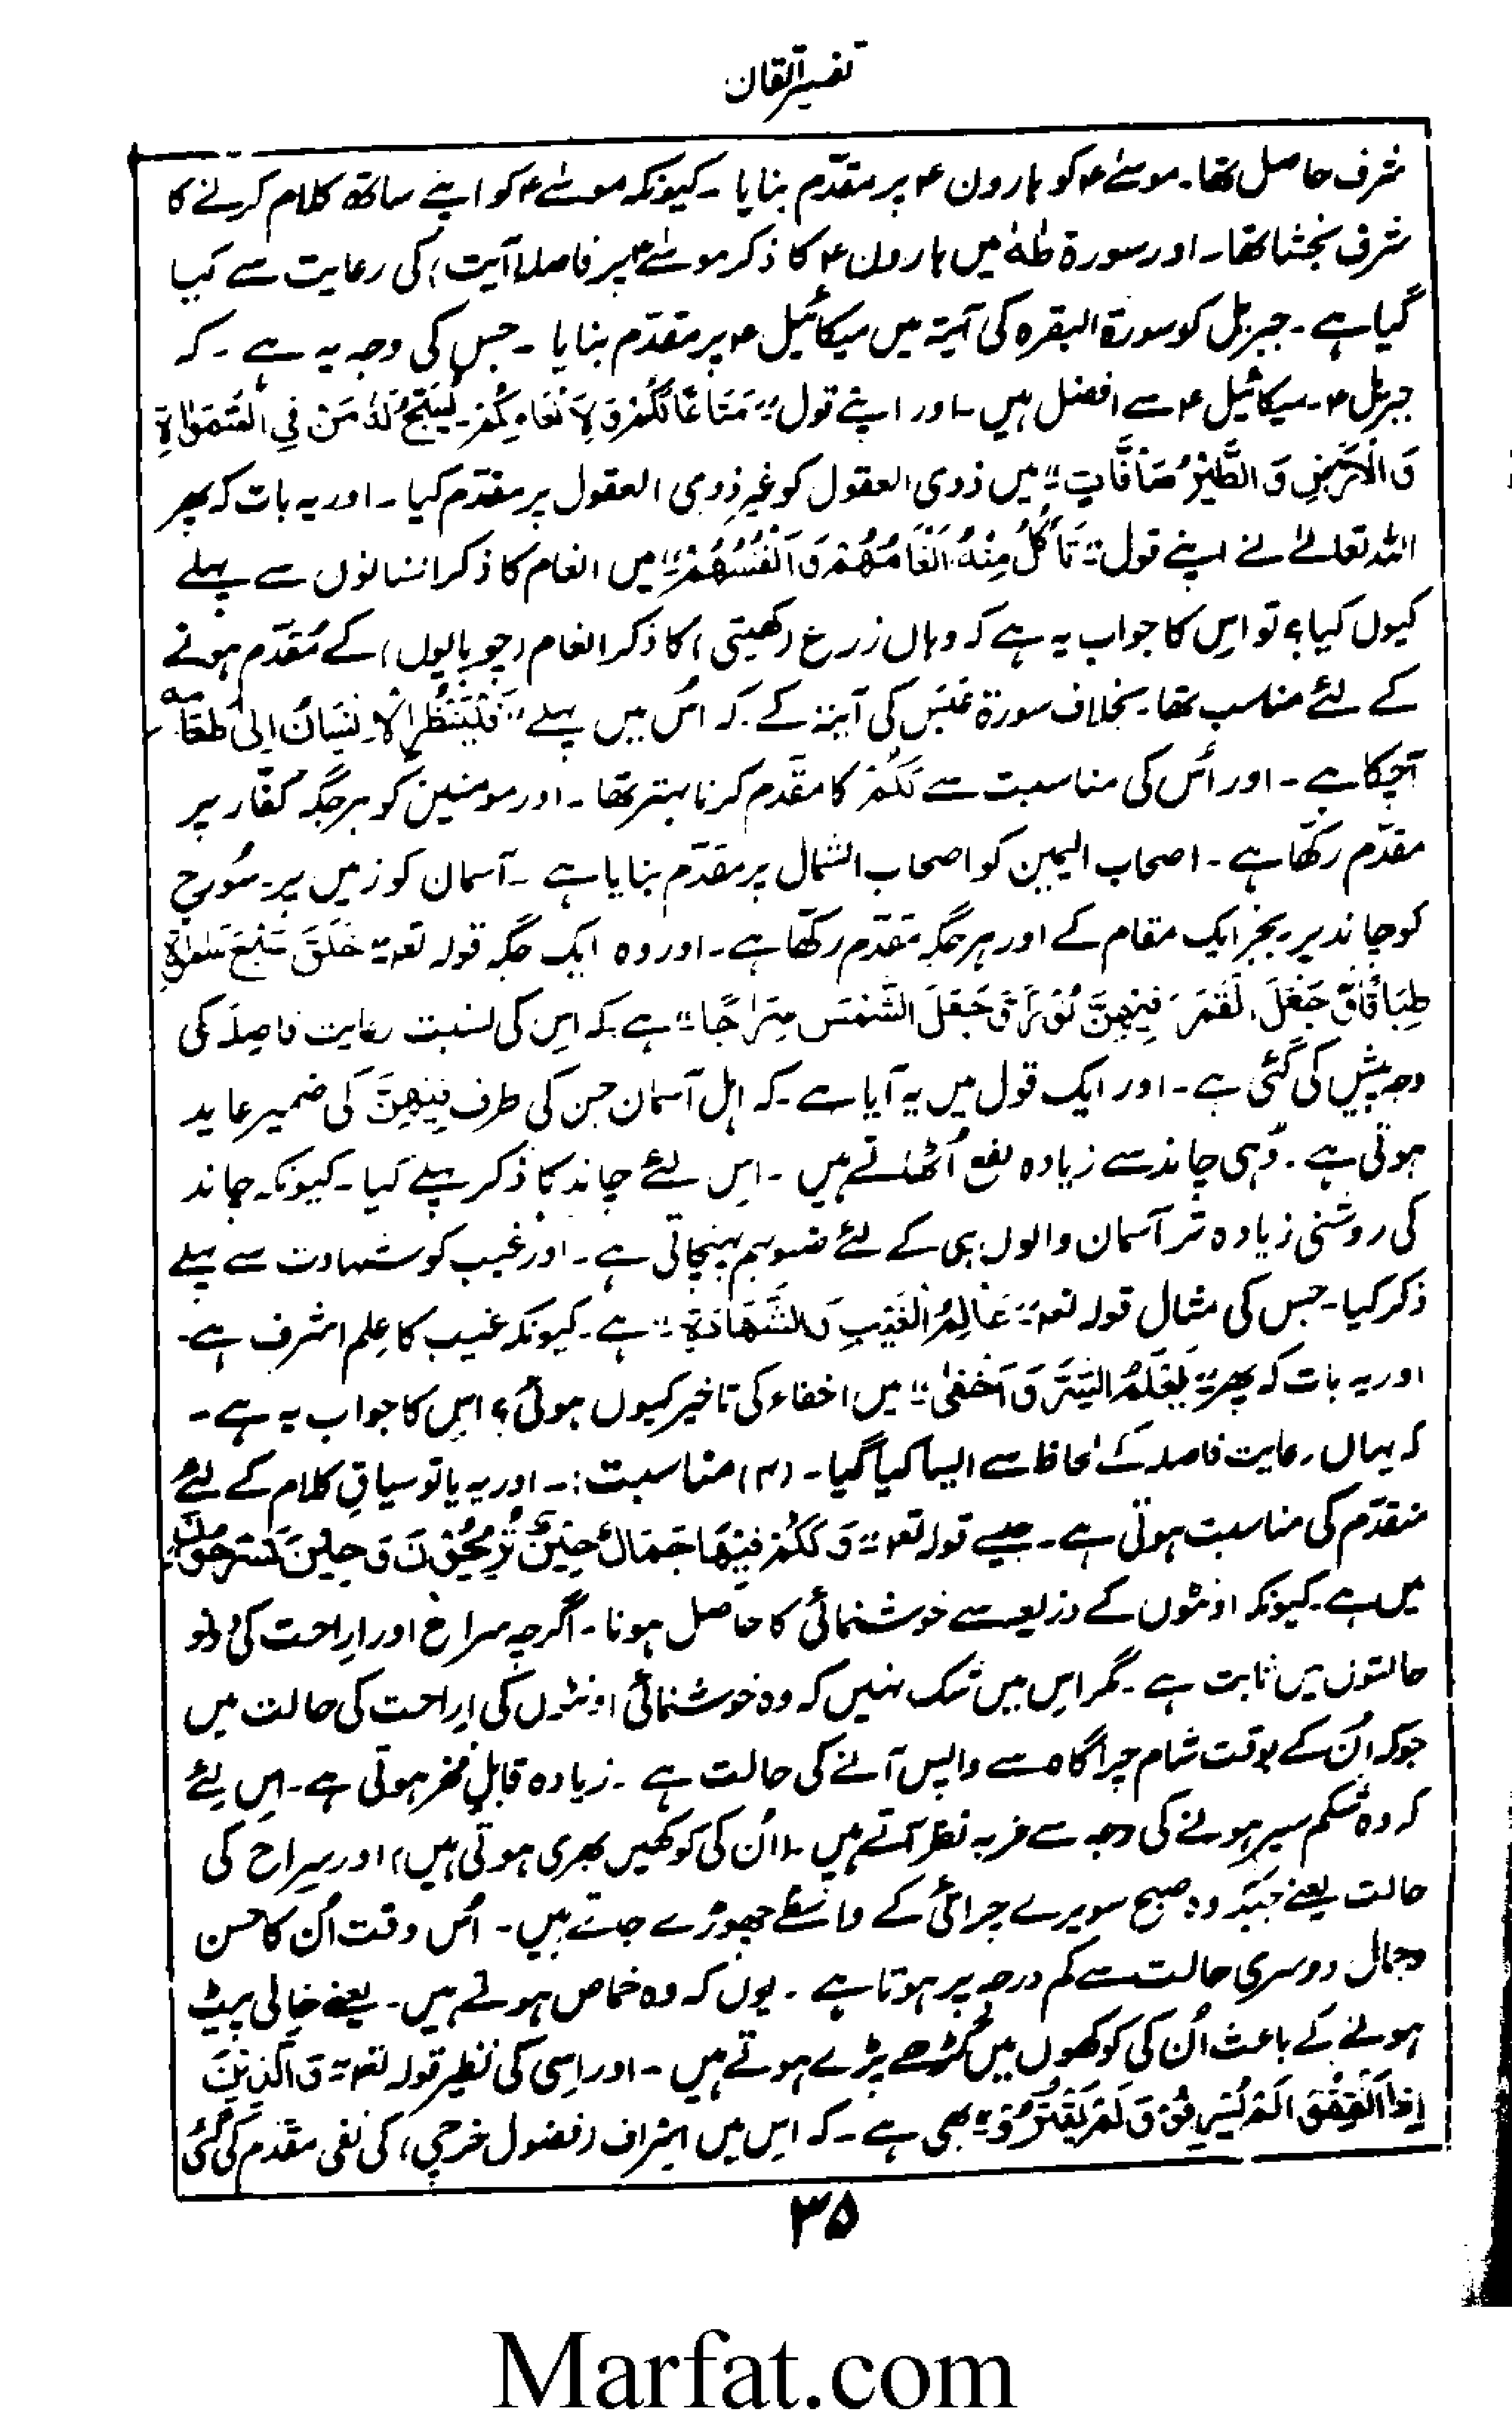 تفسیر اتقان
شرف حاصل تھا۔ موسےٰ ؑ کو ہارون ؑ پر مقدّم بنایا ۔ کیونکہ موسےٰ ؑ کو اپنے ساتھ کلام کرنے کا
شرف بخشا تھا۔ اور سورۃ طٰہٰ میں ہارون ؑ کا ذکر موسےٰ ؑ پر فاصلہ (آیت) کی رعایت سے کیا
گیا ہے ۔ جبریل کو سورۃ البقرہ کی آیۃ میں میکائیل ؑ پر مقدّم بنایا ۔ جس کی وجہ یہ ہے ۔ کہ
جبریل ؑ ۔ میکائیل ؑ سے افضل ہیں ۔ اور اپنے قول "مَتَاعًا لَّكُمْ وَلِاَنْعَامِكُمْ ۔ يُسَبِّحُ لَهٗ مَنْ فِي السَّمٰوٰاتِ
وَالْاَرْضِ وَ الطَّيْرُ صَافَّاتٍ" میں ذوی العقول کو غیر ذوی العقول پر مقدّم کیا ۔ اور یہ بات کہ پھر
اللہ تعالےٰ نے اپنے قول "تَأْكُلُ مِنْهُ اَنْعَامُهُمْ وَ اَنْفُسُهُمْ" میں انعام کا ذکر انسانوں سے پہلے
کیوں کیا؟ تو اس کا جواب یہ ہے کہ وہاں زرع (کھیتی) کا ذکر انعام (چوپایوں) کے مُقدّم ہونے
کے لئے مناسب تھا۔ بخلاف سورۃ عَبَسَ کی آیۃ کے ۔ کہ اُس میں پہلے "فَلْيَنْظُرِ الْاِنْسَانُ اِلىٰ طَعَامِهٖ
آچکا ہے ۔ اور اُس کی مناسبت سے لَكُمْ کا مقدّم کرنا بہتر تھا ۔ اور مومنین کو ہر جگہ کفّار پر
مقدّم رکھّا ہے ۔ اصحاب الیمین کو اصحاب الشمال پر مقدّم بنایا ہے ۔ آسمان کو زمیں پر۔ سُورج
کو چاند پر ۔ بجز ایک مقام کے اور ہر جگہ مقدّم رکھّا ہے ۔ اور وہ ایک جگہ قولہ تعہ "خَلَقَ سَبْعَ سَمٰوٰاتٍ
طِبَاقًا وَّ جَعَلَ الْقَمَرَ فِيْهِنَّ نُوْرًا وَّ جَعَلَ الشَّمْسَ سِرَاجًا" ہے کہ اِس کی نسبت رعایت فاصلہ کی
وجہ پیش کی گئی ہے ۔ اور ایک قول میں یہ آیا ہے ۔ کہ اہل آسمان جن کی طرف فِيْهِنَّ کی ضمیر عاید
ہوتی ہے ۔ وُہی چاند سے زیادہ نفع اُٹھاتے ہیں ۔ اِس لئے چاند کا ذکر پہلے کیا ۔ کیونکہ چاند
کی روشنی زیادہ تر آسمان والوں ہی کے لئے ضو بہم پہنچاتی ہے ۔ اور غیب کو شہادت سے پہلے
ذکر کیا ۔ جس کی مثال قولہ تعہ "عَالِمُ الْغَيْبِ وَالشَّهَادَةِ" ہے ۔ کیونکہ غیب کا عِلم اشرف ہے۔
اور یہ بات کہ پھر "يَعْلَمُ السِّرَّ وَ اَخْفىٰ" میں اخفاء کی تاخیر کیوں ہوئی؟ اس کا جواب یہ ہے ۔
کہ یہاں رعایت فاصلہ کے لحاظ سے ایسا کیا گیا ۔ (۳) مناسبت :۔ اور یہ یا تو سیاقِ کلام کے لئے
متقدّم کی مناسبت ہوتی ہے ۔ جیسے قولہ تعہ "وَ لَكُمْ فِيْهَا جَمَالٌ حِيْنَ تُرِيْحُوْنَ وَ حِيْنَ تَسْرَحُوْنَ"
میں ہے ۔ کیونکہ اونٹوں کے ذریعہ سے خوشنمائی کا حاصل ہونا ۔ اگرچہ سراح اور اِراحت کی دو
حالتوں میں ثابت ہے ۔ مگر اِس میں شک نہیں کہ وہ خوشنمائی اونٹوں کی اِراحت کی حالت میں
جو کہ اُن کے بوقت شام چراگاہ سے واپس آنے کی حالت ہے ۔ زیادہ قابلِ فخر ہوتی ہے ۔ اِس لئے
کہ وہ شکم سیر ہونے کی وجہ سے فربہ نظر آتے ہیں (اُن کی کوکھیں بھری ہوتی ہیں) اور سراح کی
حالت یعنے جبکہ وہ صبح سویرے چرائی کے واسطے چھوڑے جاتے ہیں ۔ اُس وقت اُن کا حسن
وجمال دوسری حالت سے کم درجہ پر ہوتا ہے ۔ یوں کہ وہ خماص ہوتے ہیں ۔ یعنے خالی پیٹ
ہونے کے باعث اُن کی کوکھوں میں گڑھے پڑے ہوتے ہیں ۔ اور اِسی کی نظیر قولہ تعہ "وَ الَّذِيْنَ
اِذَا اَنْفَقُوْا لَمْ يُسْرِفُوْا وَ لَمْ يَقْتُرُوْا" بھی ہے ۔ کہ اس میں اسْراف (فضول خرچی) کی نفی مقدم کی گئی
۳۵
Marfat.com